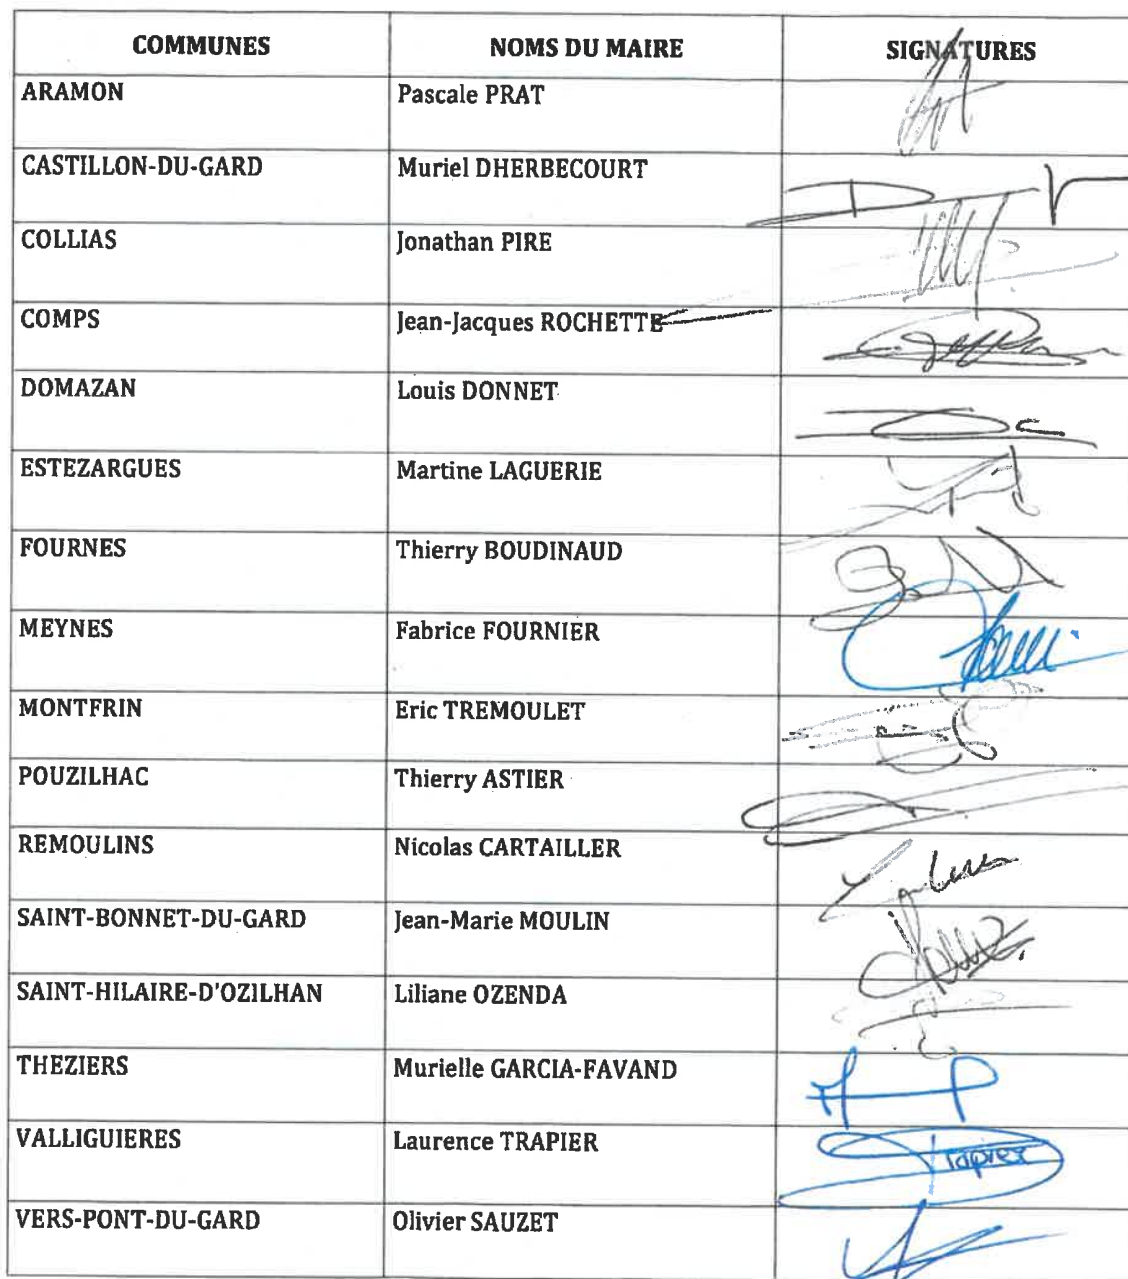 COMMUNES NOMS DU MAIRE SIGNATURES
ARAMON Pascale PRAT
CASTILLON-DU-GARD Muriel DHERBECOURT
COLLIAS Jonathan PIRE
COMPS Jean-Jacques ROCHETTE
DOMAZAN Louis DONNET
ESTEZARGUES Martine LAGUERIE
FOURNES Thierry BOUDINAUD
MEYNES Fabrice FOURNIER
MONTFRIN Eric TREMOULET
POUZILHAC Thierry ASTIER
REMOULINS Nicolas CARTAILLER
SAINT-BONNET-DU-GARD Jean-Marie MOULIN
SAINT-HILAIRE-D'OZILHAN Liliane OZENDA
THEZIERS Murielle GARCIA-FAVAND
VALLIGUIERES Laurence TRAPIER Trapier
VERS-PONT-DU-GARD Olivier SAUZET